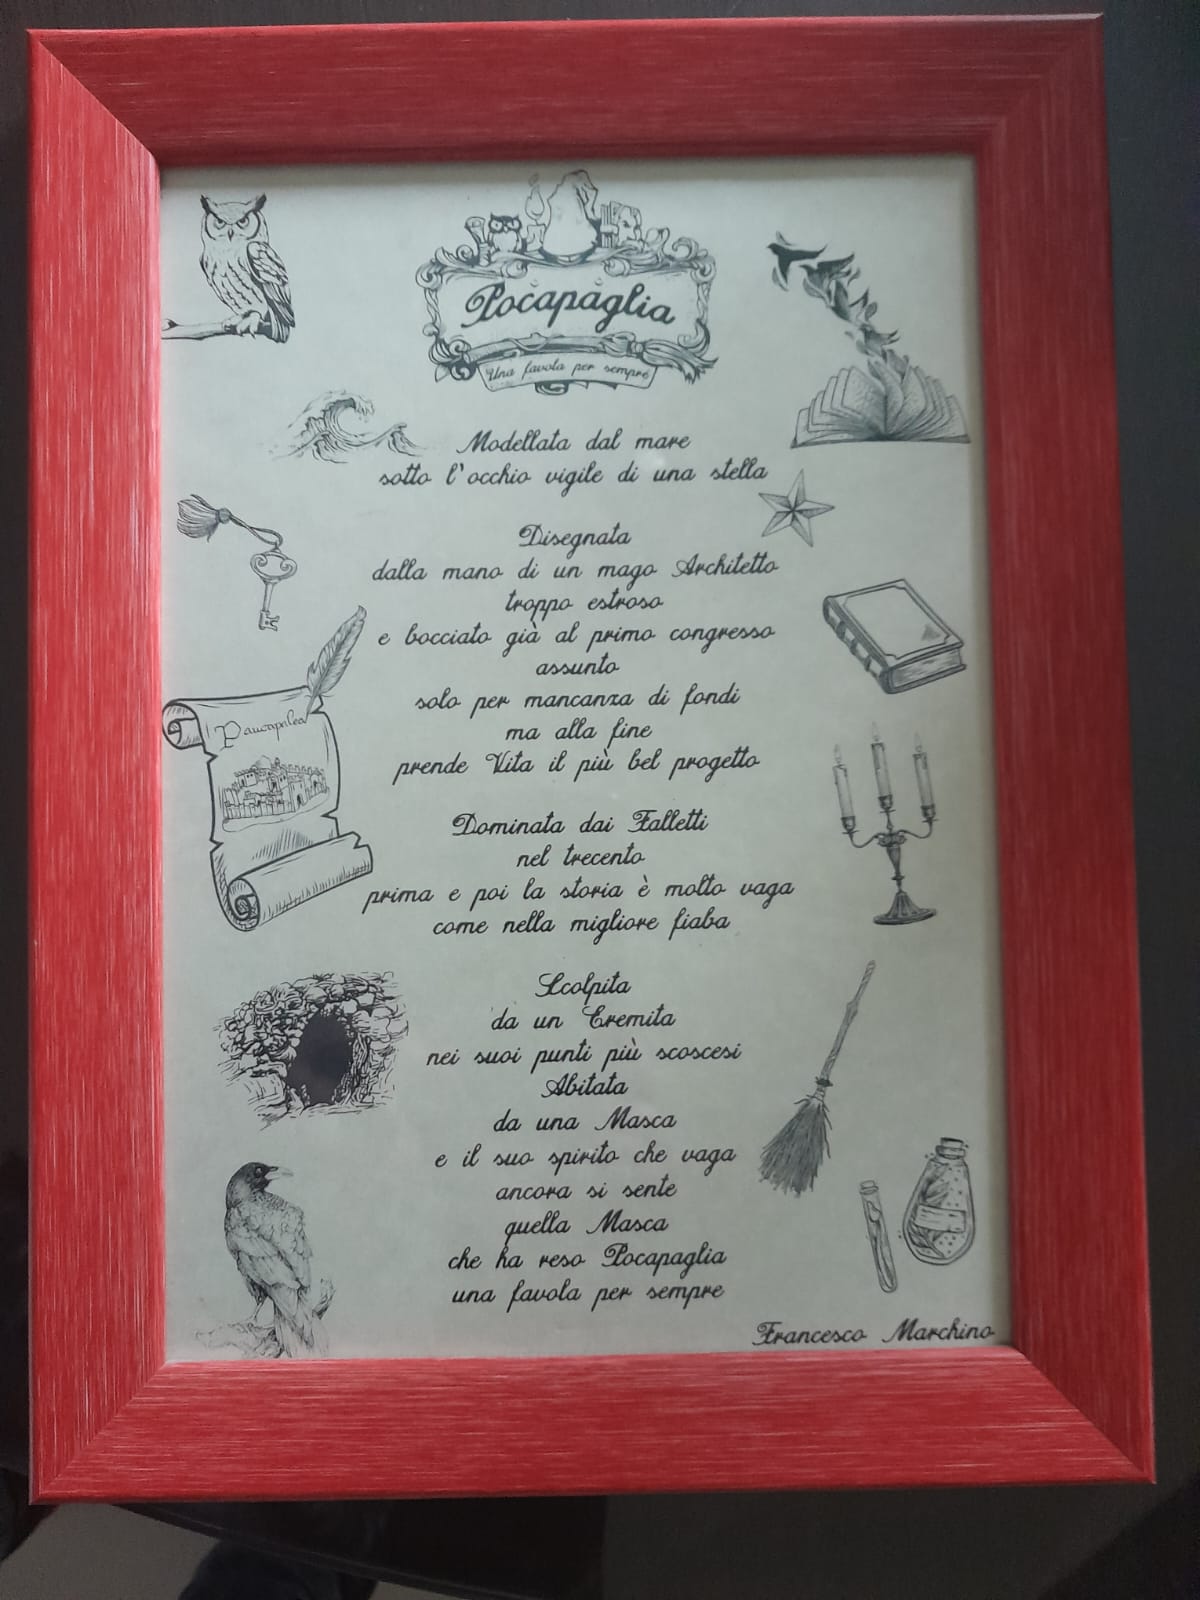 Pocapaglia
Una favola per sempre
Modellata dal mare
sotto l'occhio vigile di una stella
Disegnata
dalla mano di un mago Architetto
troppo estroso
e bocciato già al primo congresso
assunto
solo per mancanza di fondi
ma alla fine
prende Vita il più bel progetto
Paucapalea
Dominata dai Falletti
nel trecento
prima e poi la storia è molto vaga
come nella migliore fiaba
Scolpita
da un Eremita
nei suoi punti più scoscesi
Abitata
da una Masca
e il suo spirito che vaga
ancora si sente
quella Masca
che ha reso Pocapaglia
una favola per sempre
Francesco Marchino